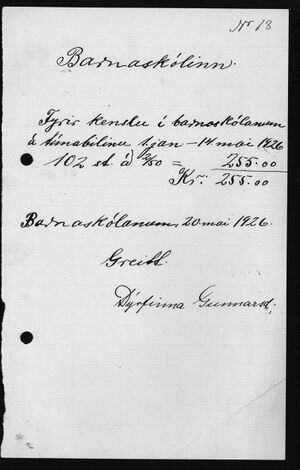 Nr 18
Barnaskólinn.
Fyrir kenslu í barnaskólanum
á tímabilinu 1 jan – 14 mai 1926
102 st. á 2/50 = 255.00
Kr: 255.00
Barnaskólanum, 20 mai 1926.
Greitt.
Dýrfinna Gunnarsd: